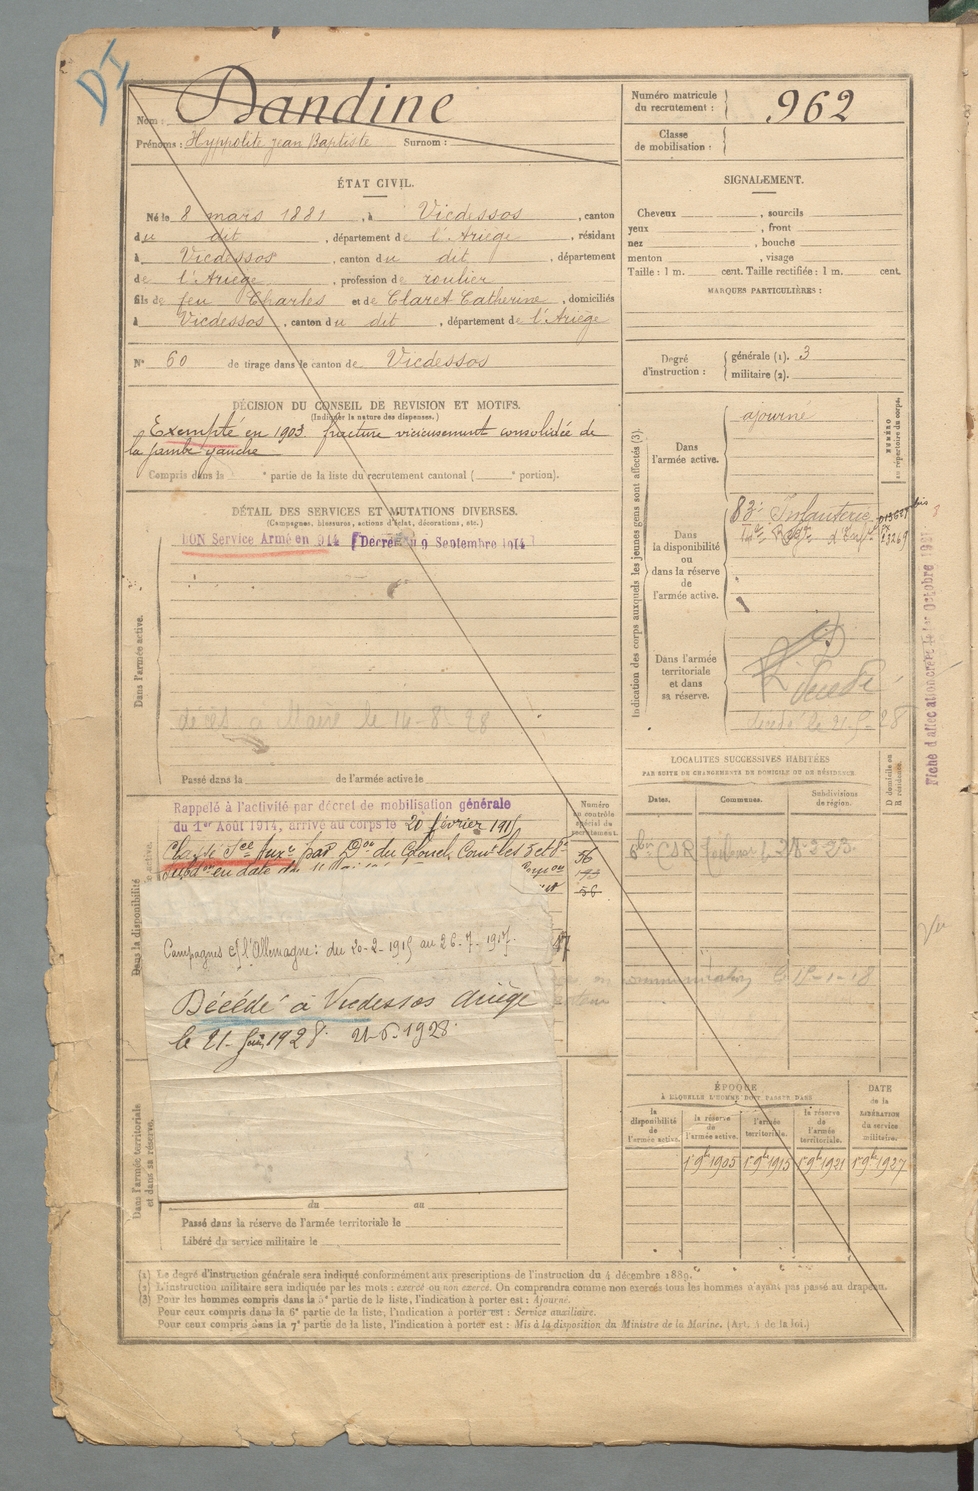 DI
Nom : Dandine
Prénoms : Hyppolite Jean Baptiste Surnom :
Numéro matricule du recrutement : 962
Classe de mobilisation :
ÉTAT CIVIL.
Né le 8 mars 1881, à Vicdessos, canton
du dit, département de l'Ariège, résidant
à Vicdessos, canton du dit, département
de l'Ariège, profession de roulier
fils de feu Charles et de Claret Catherine, domiciliés
à Vicdessos, canton du dit, département de l'Ariège
N° 60 de tirage dans le canton de Vicdessos
DÉCISION DU CONSEIL DE REVISION ET MOTIFS.
(Indiquer la nature des dispenses.)
Exempté en 1903. fracture vicieusement consolidée de
la jambe gauche
Compris dans la e partie de la liste du recrutement cantonal ( e portion).
SIGNALEMENT.
Cheveux , sourcils
yeux , front
nez , bouche
menton , visage
Taille : 1 m. cent. Taille rectifiée : 1 m. cent.
MARQUES PARTICULIÈRES :
Degré d'instruction : générale (1). 3
militaire (2).
DÉTAIL DES SERVICES ET MUTATIONS DIVERSES.
(Campagnes, blessures, actions d'éclat, décorations, etc.)
BON Service Armé en 914 (Décret du 9 Septembre 1914)
Dans l'armée active.
Maire le 14-8-28
Passé dans la de l'armée active le
Indication des corps auxquels les jeunes gens sont affectés (3).
NUMÉRO au répertoire du corps.
Dans l'armée active. ajourné
Dans la disponibilité ou dans la réserve de l'armée active.
83e Infanterie
Dans l'armée territoriale et dans sa réserve.
Décédé
décédé le 21-6-28
Fiche d'affectation créée le 1er Octobre 1921
LOCALITÉS SUCCESSIVES HABITÉES
PAR SUITE DE CHANGEMENTS DE DOMICILE OU DE RÉSIDENCE.
Dates. Communes. Subdivisions de région. D domicile ou R résidence.
Rappelé à l'activité par décret de mobilisation générale
du 1er Août 1914, arrivé au corps le 20 février 1915
Classé Sce Auxre par Don du Colonel Comt les 5 et 6e
Subdon en date du
Numéro au contrôle spécial du recrutement.
56
56
Dans la disponibilité
Campagnes c/ l'Allemagne : du 20-2-1915 au 26-7-1917.
Décédé à Vicdessos Ariège
le 21 juin 1928. 21-6-1928.
communication le 15-1-18
Dans l'armée territoriale et dans sa réserve.
du au
Passé dans la réserve de l'armée territoriale le
Libéré du service militaire le
ÉPOQUE
À LAQUELLE L'HOMME DOIT PASSER DANS
DATE de la LIBÉRATION du service militaire.
la disponibilité de l'armée active. la réserve de l'armée active. l'armée territoriale. la réserve de l'armée territoriale.
1er 9bre 1905 1er 9bre 1915 1er 9bre 1921 1er 9bre 1927
(1) Le degré d'instruction générale sera indiqué conformément aux prescriptions de l'instruction du 4 décembre 1889.
(2) L'instruction militaire sera indiquée par les mots : exercé ou non exercé. On comprendra comme non exercés tous les hommes n'ayant pas passé au drapeau.
(3) Pour les hommes compris dans la 5e partie de la liste, l'indication à porter est : Ajourné.
Pour ceux compris dans la 6e partie de la liste, l'indication à porter est : Service auxiliaire.
Pour ceux compris dans la 7e partie de la liste, l'indication à porter est : Mis à la disposition du Ministre de la Marine. (Art. 4 de la loi.)